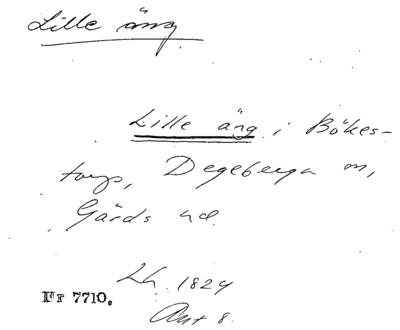 Lille äng
Lille äng i Bökes-
torp, Degeberga sn,
Gärds hd.
Lh. 1824
Akt 8.
Nr 7710.